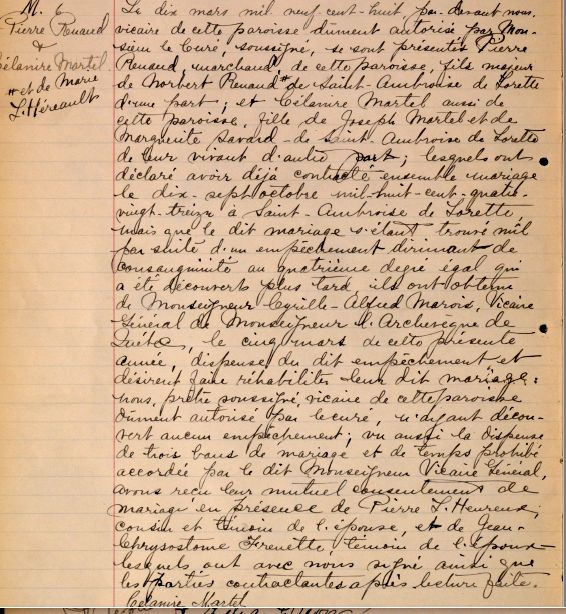 M. 6
Pierre Renaud
&
Célanire Martel
# et de Marie
L. Héreault
Le dix mars mil neuf-cent-huit, par-devant nous,
vicaire de cette paroisse dûment autorisé par Mon-
sieur le Curé, soussigné, se sont présentés Pierre
Renaud, marchand, de cette paroisse, fils majeur
de Norbert Renaud # de Saint-Ambroise de Lorette
d'une part; et Célanire Martel aussi de
cette paroisse, fille de Joseph Martel et de
Marguerite Savard - de Saint-Ambroise de Lorette
de leur vivant d'autre part; lesquels ont
déclaré avoir déjà contracté ensemble mariage
le dix-sept octobre mil-huit-cent-quatre-
vingt-treize à Saint-Ambroise de Lorette,
mais que le dit mariage s'étant trouvé nul
par suite d'un empêchement dirimant de
consanguinité au quatrième degré égal qui
a été découvert plus tard, ils ont obtenu
de Monseigneur Cyrille-Alfred Marois, Vicaire
Général de Monseigneur l'Archevêque de
Québec, le cinq mars de cette présente
année, dispense du dit empêchement et
désirent faire réhabiliter leur dit mariage:
nous, prêtre soussigné, vicaire de cette paroisse
dûment autorisé par le curé, n'ayant décou-
vert aucun empêchement; vu aussi la dispense
de trois bans de mariage et de temps prohibé
accordée par le dit Monseigneur Vicaire Général,
avons reçu leur mutuel consentement de
mariage en présence de Pierre L'Heureux,
cousin et témoin de l'épouse, et de Jean-
Chrysostome Frenette témoin de l'époux
lesquels ont avec nous signé ainsi que
les parties contractantes après lecture faite.
Célanire Martel